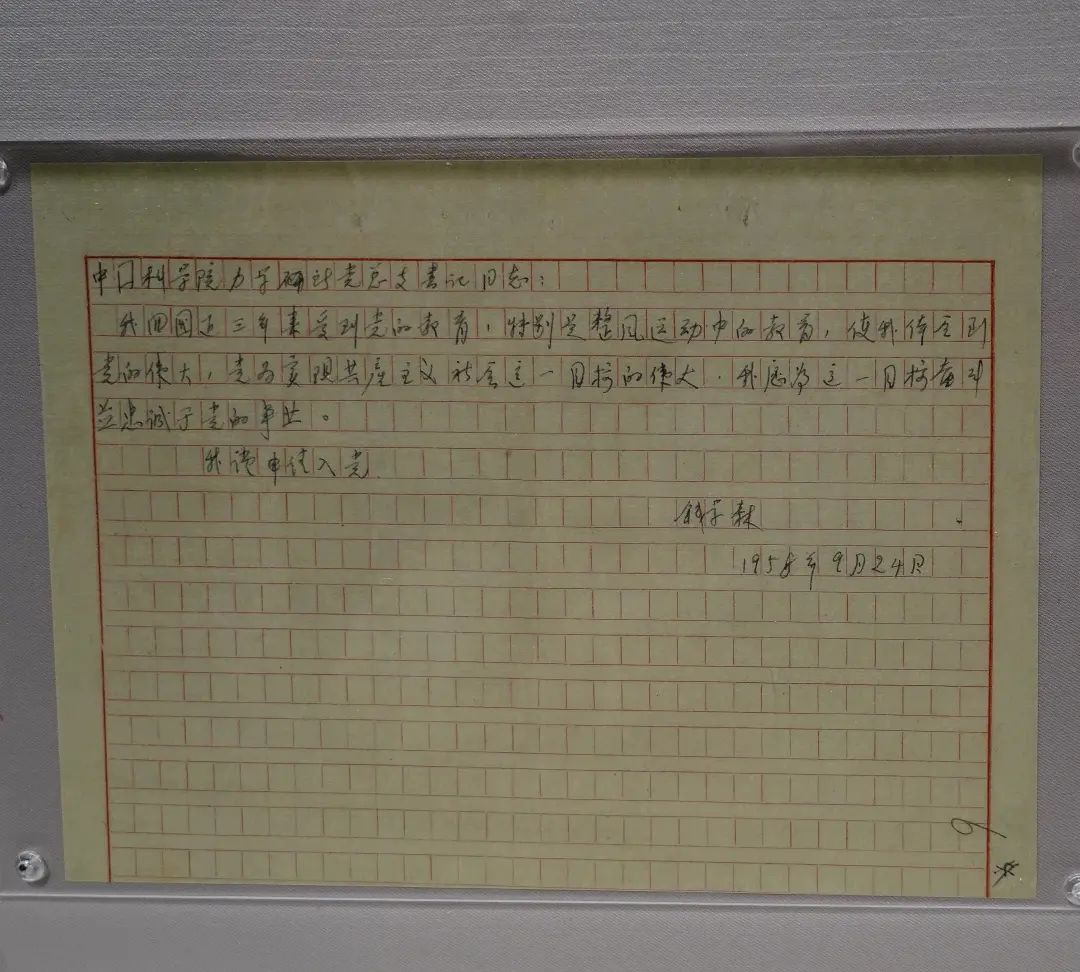 中国科学院力学研究所党总支书记同志：
我回国近三年来受到党的教育，特别是整风运动中的教育，使我体会到
党的伟大，党为实现共产主义社会这一目标的伟大．我愿为这一目标奋斗
并忠诚于党的事业。
我谨申请入党.
钱学森
1958年9月24日
9